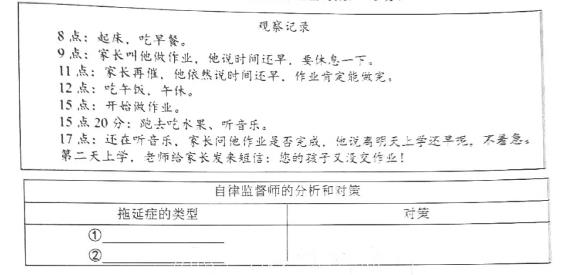 观察记录
8点：起床，吃早餐。
9点：家长叫他做作业，他说时间还早，要休息一下。
11点：家长再催，他依然说时间还早，作业肯定能做完。
12点：吃午饭，午休。
15点：开始做作业。
15点20分：跑去吃水果、听音乐。
17点：还在听音乐，家长问他作业是否完成，他说离明天上学还早呢，不着急。
第二天上学，老师给家长发来短信：您的孩子又没交作业！
自律监督师的分析和对策
拖延症的类型 对策
①
②